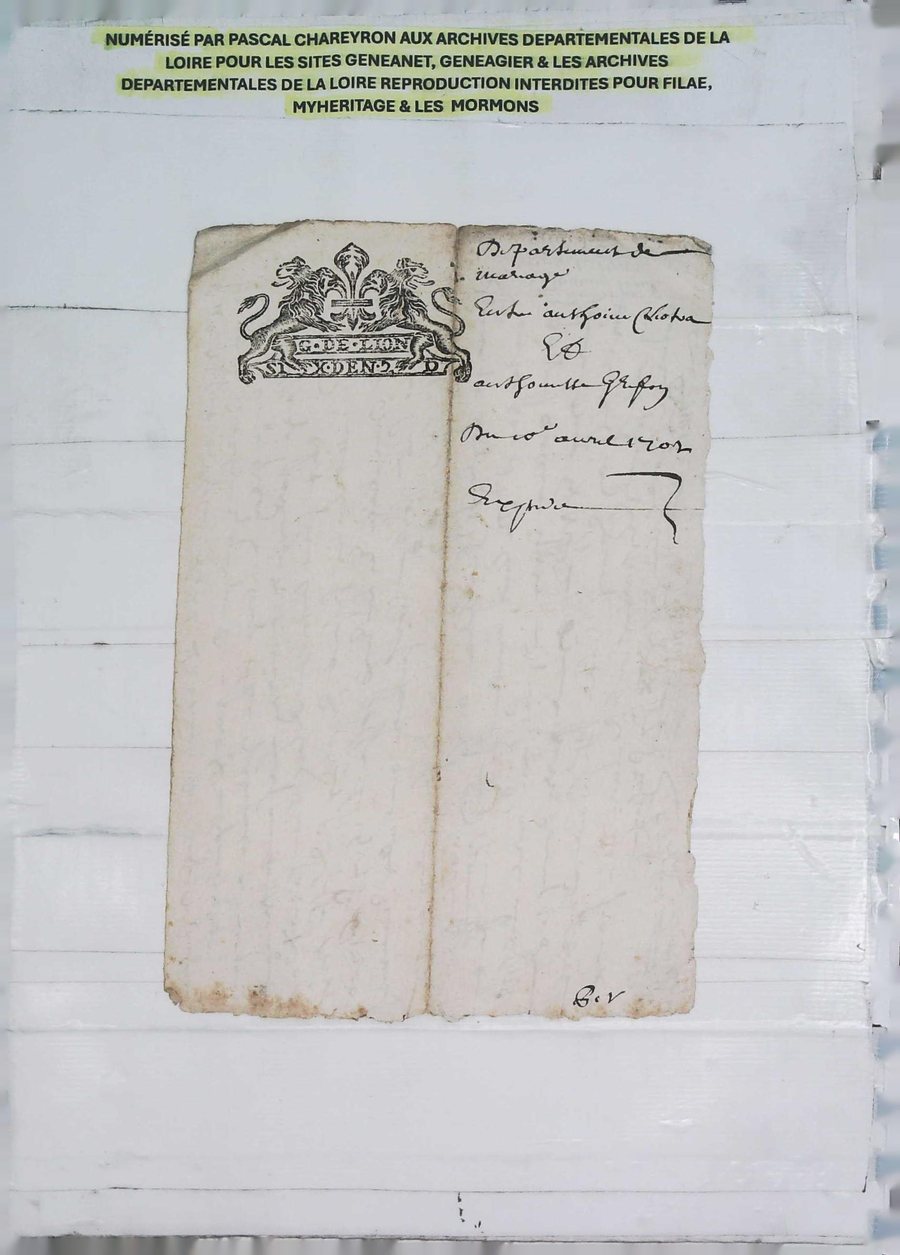 NUMÉRISÉ PAR PASCAL CHAREYRON AUX ARCHIVES DEPARTEMENTALES DE LA
LOIRE POUR LES SITES GENEANET, GENEAGIER & LES ARCHIVES
DEPARTEMENTALES DE LA LOIRE REPRODUCTION INTERDITES POUR FILAE,
MYHERITAGE & LES MORMONS
G·DE·LION
SIX·DEN·2 D
Departement de
mariage
Entre anthoine
Et
anthoinette
Du 10e avril